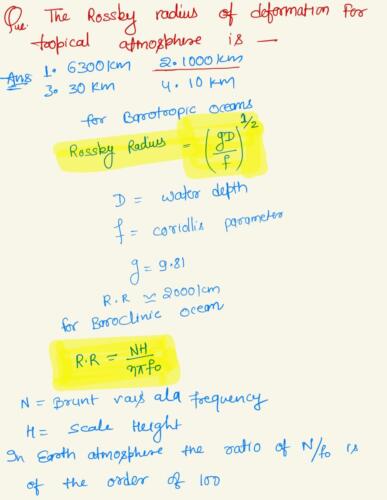 Que. The Rossby radius of deformation for
tropical atmosphere is —
Ans 1. 6300 km 2. 1000 km
3. 30 km 4. 10 km
for Barotropic Oceans
Rossby Radius = (gD/f)^1/2
D = water depth
f = coriollis parameter
g = 9.81
R.R ≃ 2000 km
for Baroclinic Ocean
R.R = NH/nπf₀
N = Brunt vais ala frequency
H = Scale Height
In Earth atmosphere the ratio of N/f₀ is
of the order of 100